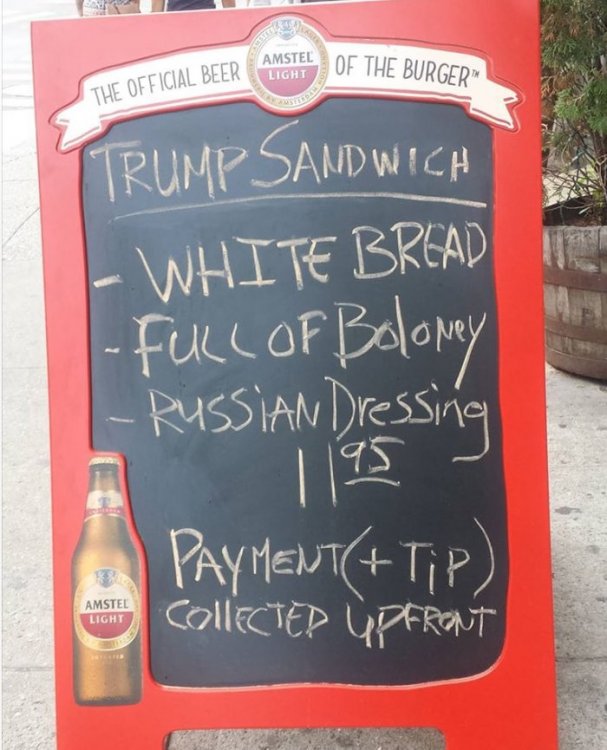 THE OFFICIAL BEER
AMSTEL
LIGHT
OF THE BURGER™
TRUMP SANDWICH
- WHITE BREAD
- FULL OF BOLONEY
- RUSSIAN DRESSING
11 95
PAYMENT (+ TIP)
COLLECTED UPFRONT
AMSTEL
LIGHT